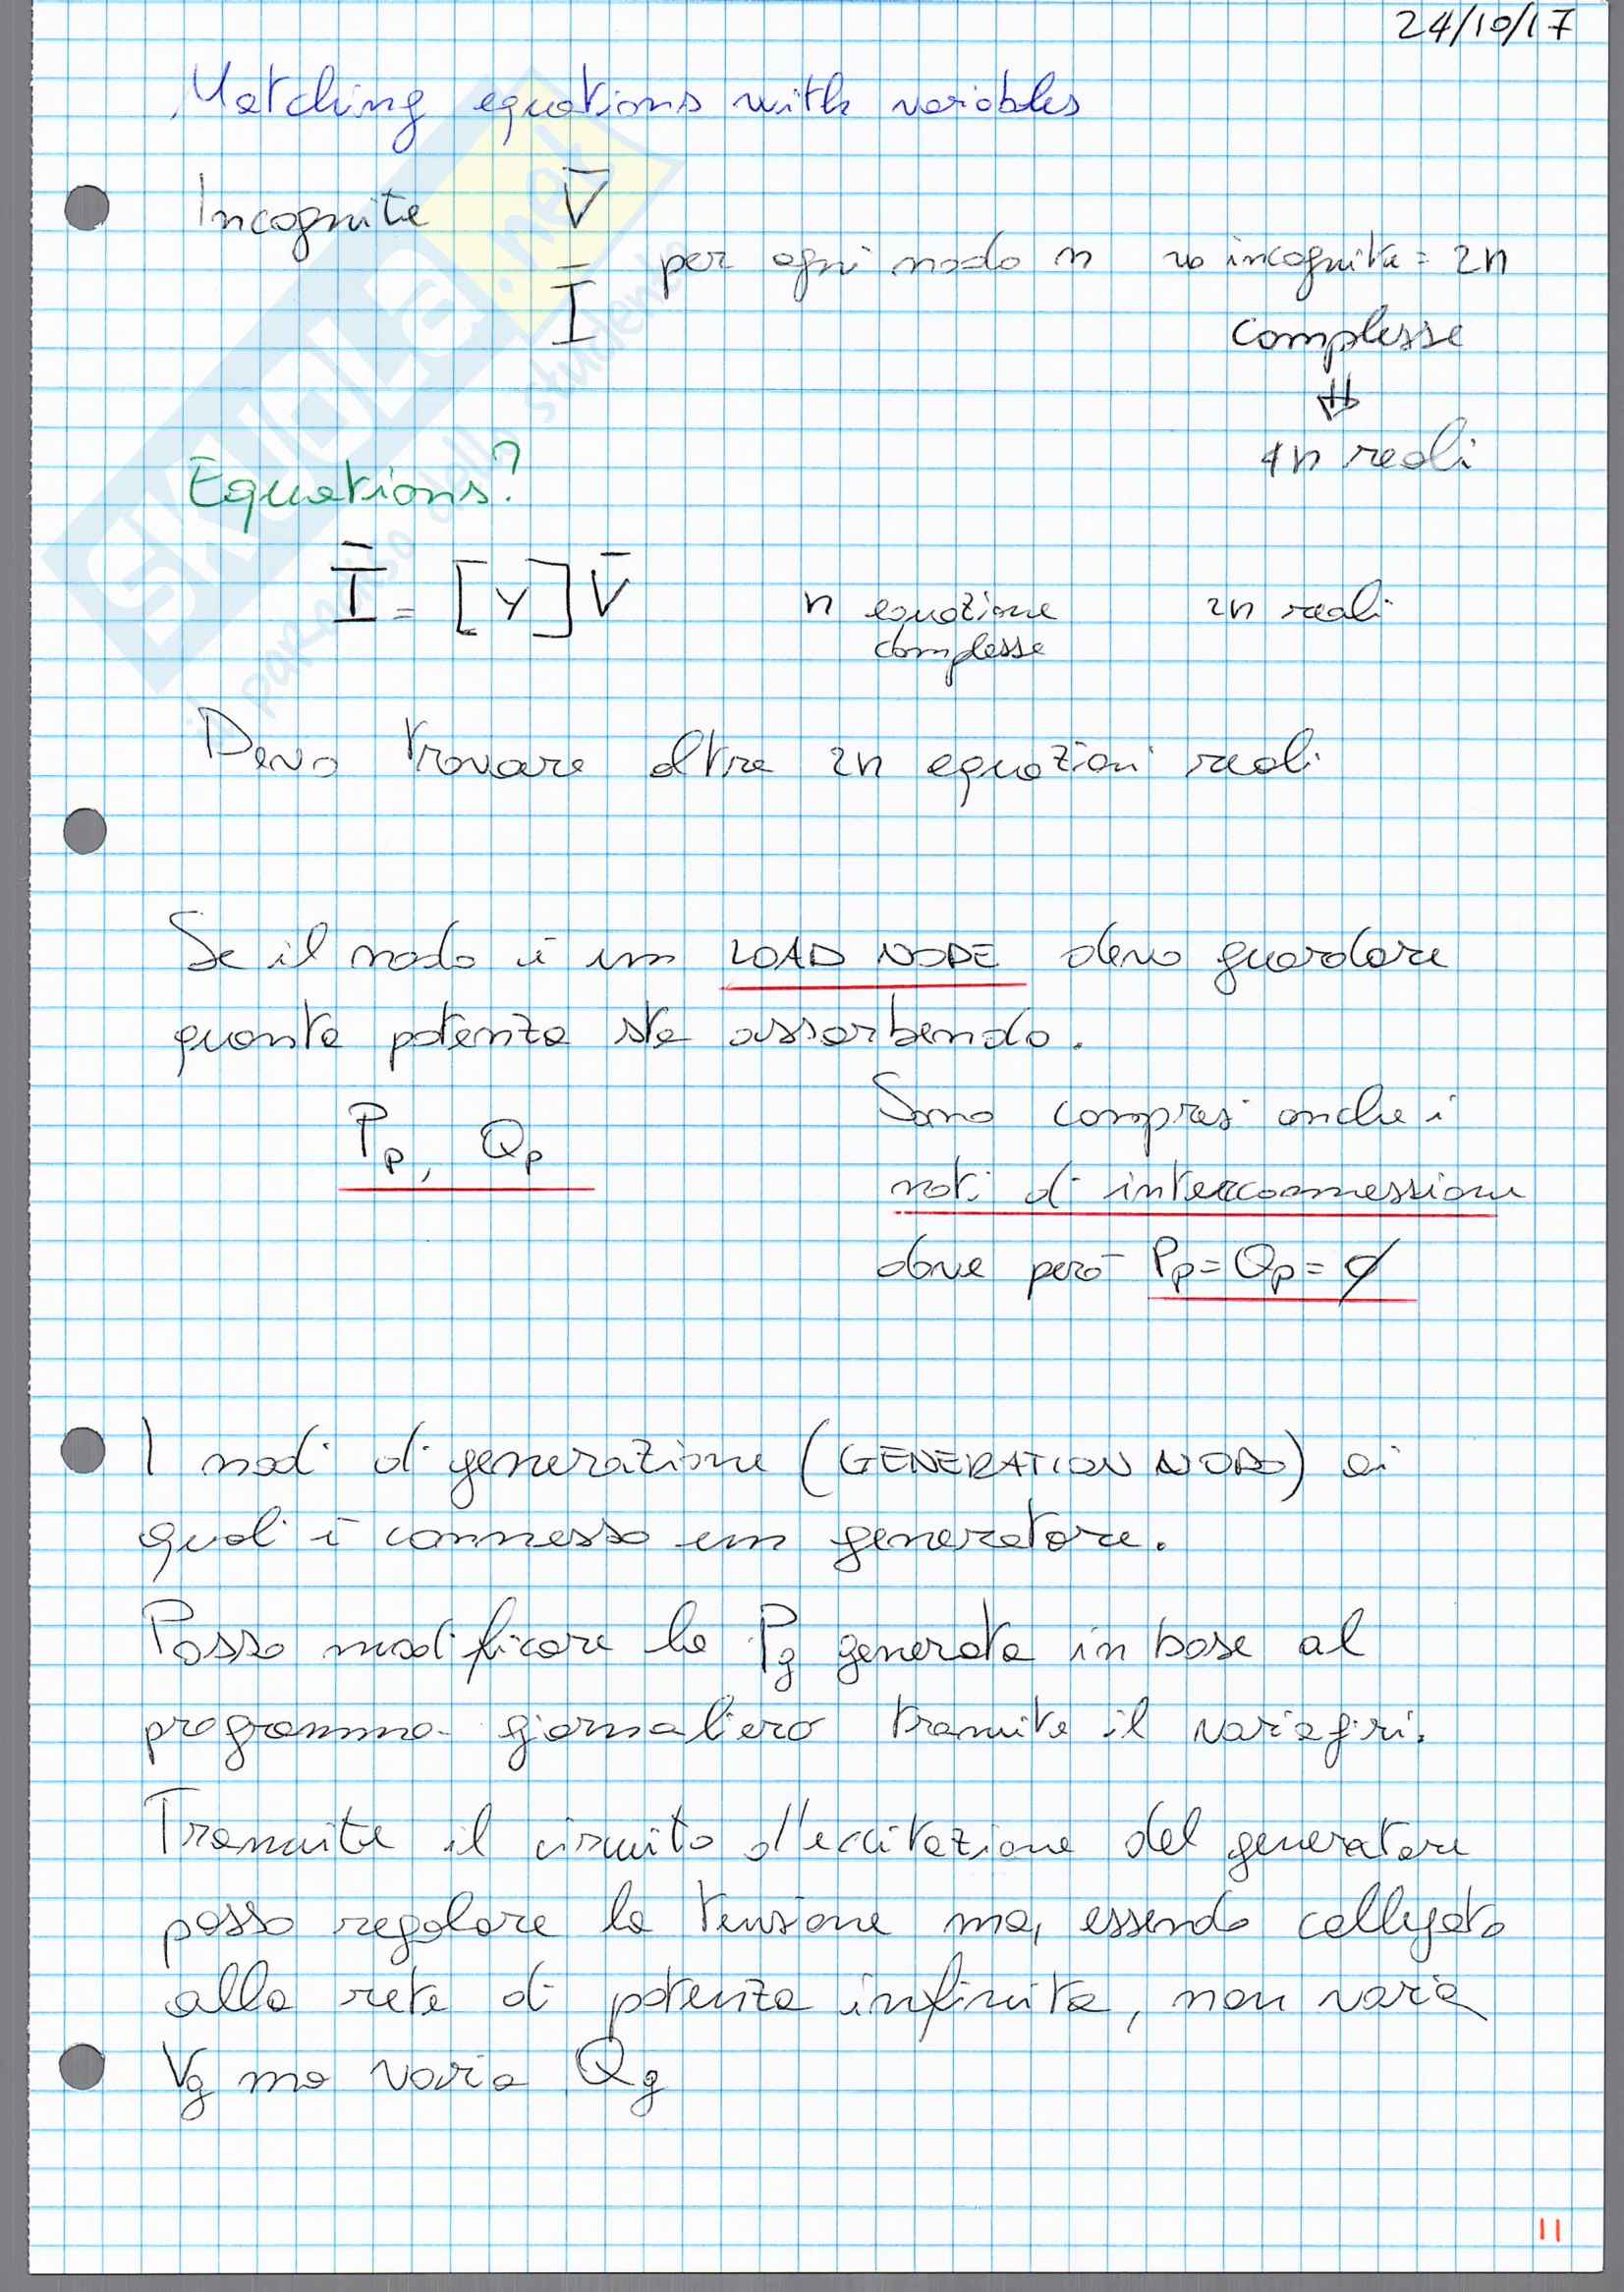 24/10/17
Matching equations with variables
Incognite V̄
Ī per ogni nodo n no incognite = 2n
complesse
⇓
4n reali
Equations?
Ī = [Y] V̄ n equazione 2n reali
complesse
Devo trovare altre 2n equazioni reali
Se il nodo è un LOAD NODE devo guardare
quanta potenza sta assorbendo.
Pp, Qp
Sono compresi anche i
nodi di interconnessione
dove però Pp = Qp = ∅
I nodi di generazione (GENERATION NODE) ai
quali è connesso un generatore.
Posso modificare la Pg generata in base al
programma giornaliero tramite il variagiri.
Tramite il circuito d'eccitazione del generatore
posso regolare la tensione ma, essendo collegato
alla rete di potenza infinita, non varia
Vg ma varia Qg
11
SKUOLA.net
il paradiso dello studente